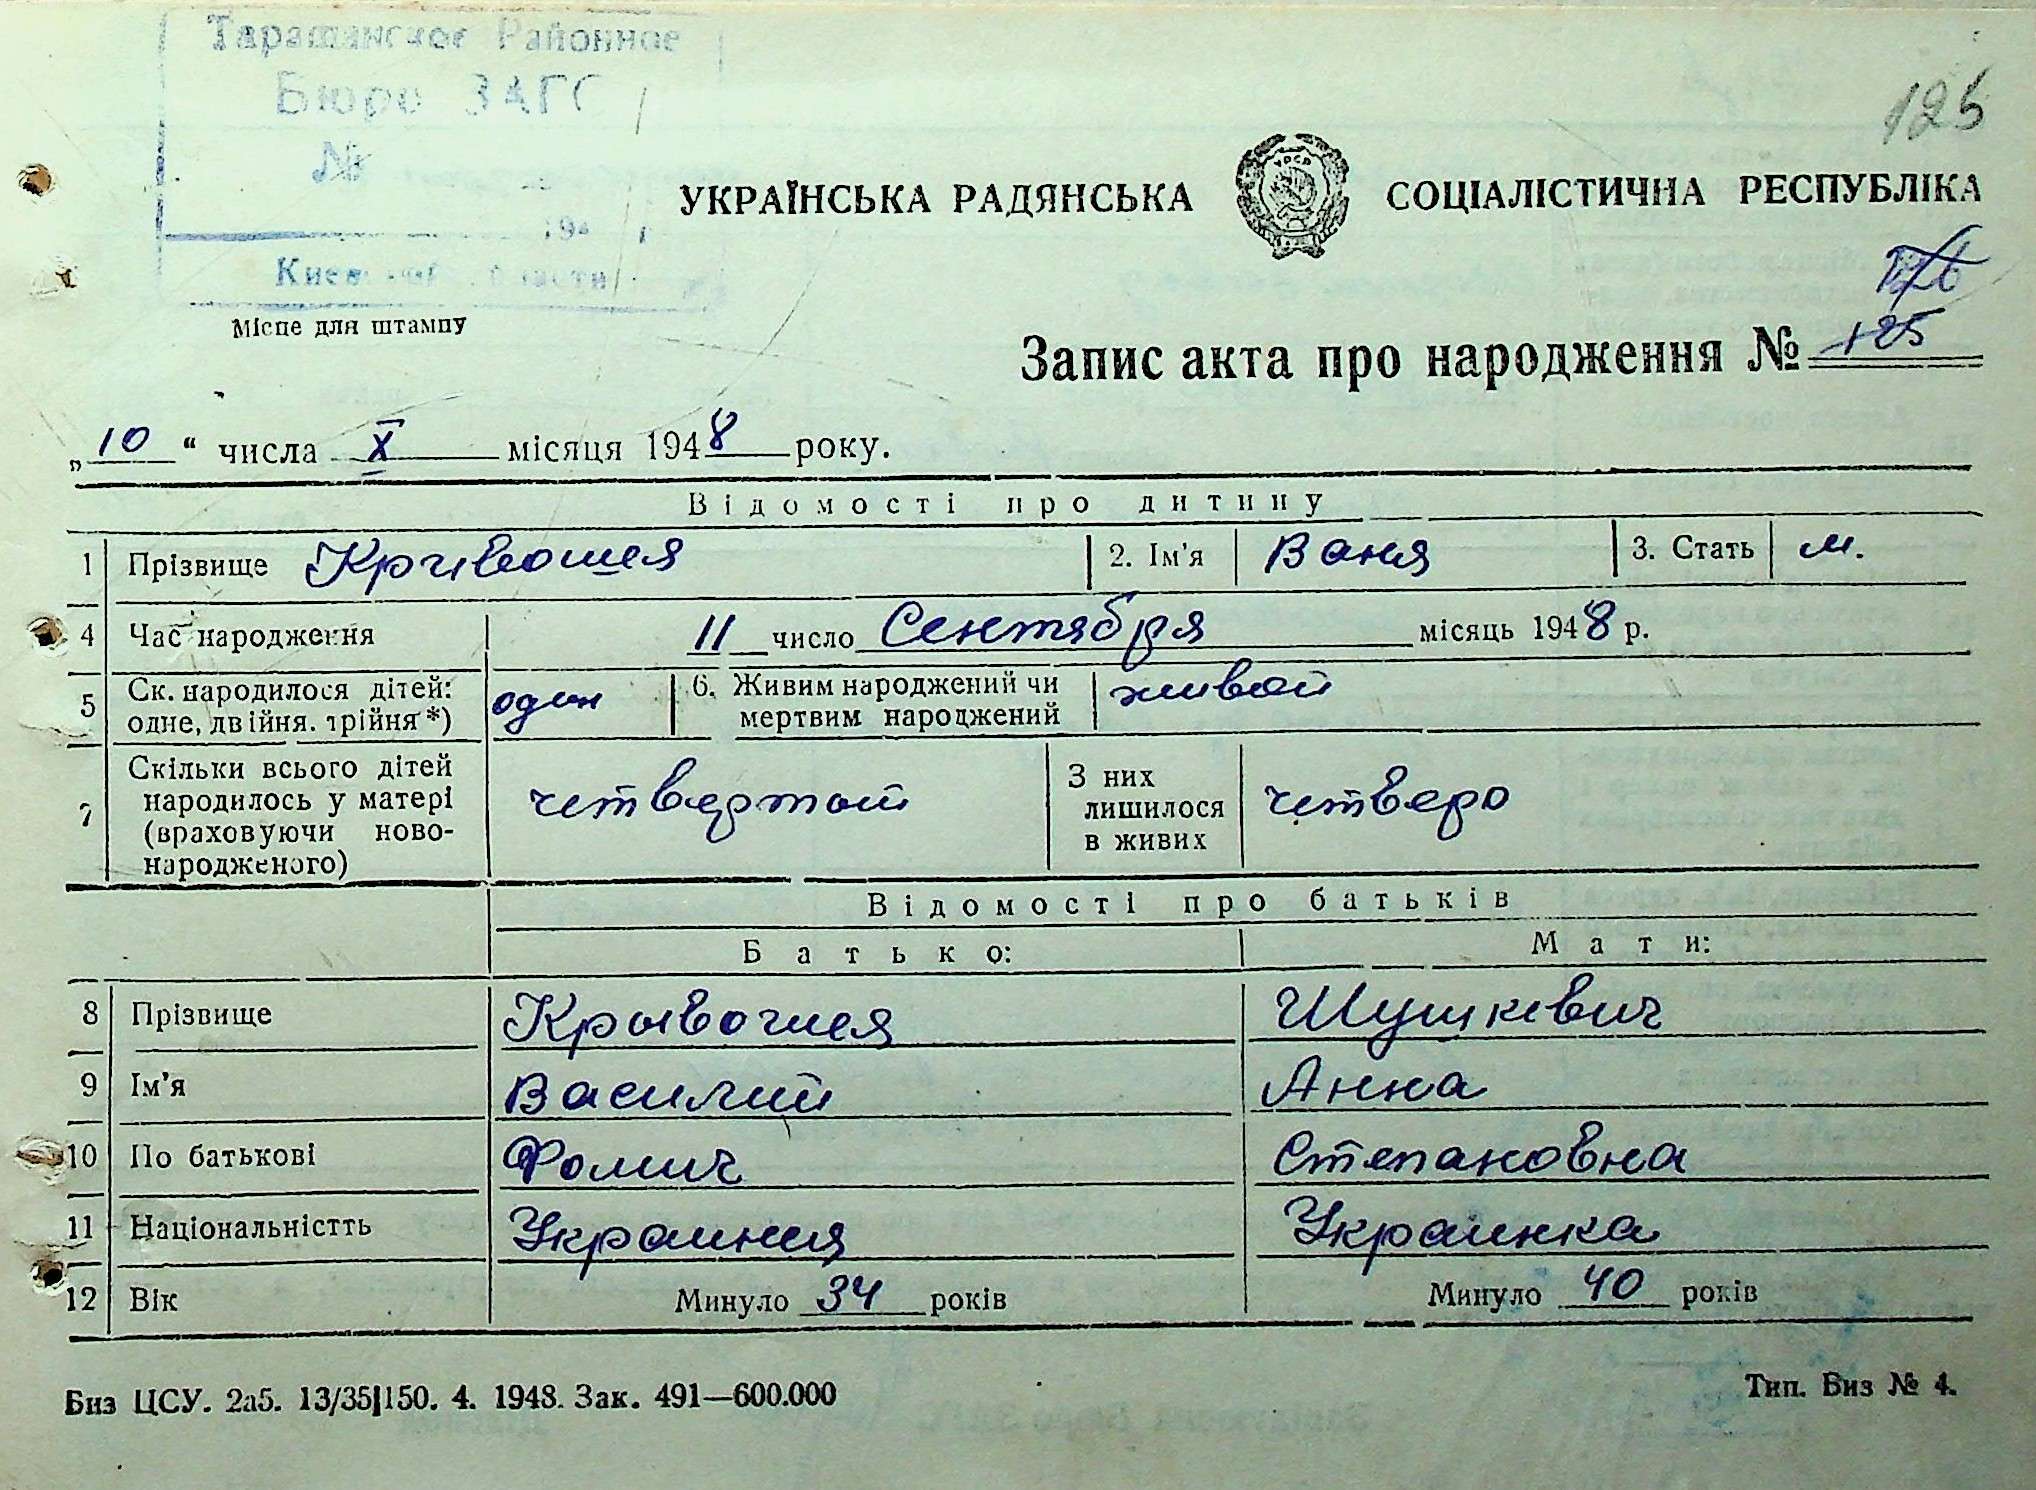 Таращанское Районное
Бюро ЗАГС
№
194 г
Киевской области
Місце для штампу
125
УКРАЇНСЬКА РАДЯНСЬКА СОЦІАЛІСТИЧНА РЕСПУБЛІКА
УРСР
Запис акта про народження № 125
„10“ числа X місяця 1948 року.
Відомості про дитину
1 Прізвище Кривошея 2. Ім'я Ваня 3. Стать м.
4 Час народження 11 число Сентября місяць 1948 р.
5 Ск. народилося дітей: одне, двійня. трійня*) один 6. Живим народжений чи мертвим народжений живой
7 Скільки всього дітей народилось у матері (враховуючи ново-народженого) четвертой З них лишилося в живих четверо
Відомості про батьків
Батько: Мати:
8 Прізвище Крывошея Шушкевич
9 Ім'я Василий Анна
10 По батькові Фомич Степановна
11 Національністть Украинец Украинка
12 Вік Минуло 34 років Минуло 40 років
Биз ЦСУ. 2а5. 13/35|150. 4. 1948. Зак. 491—600.000 Тип. Биз № 4.